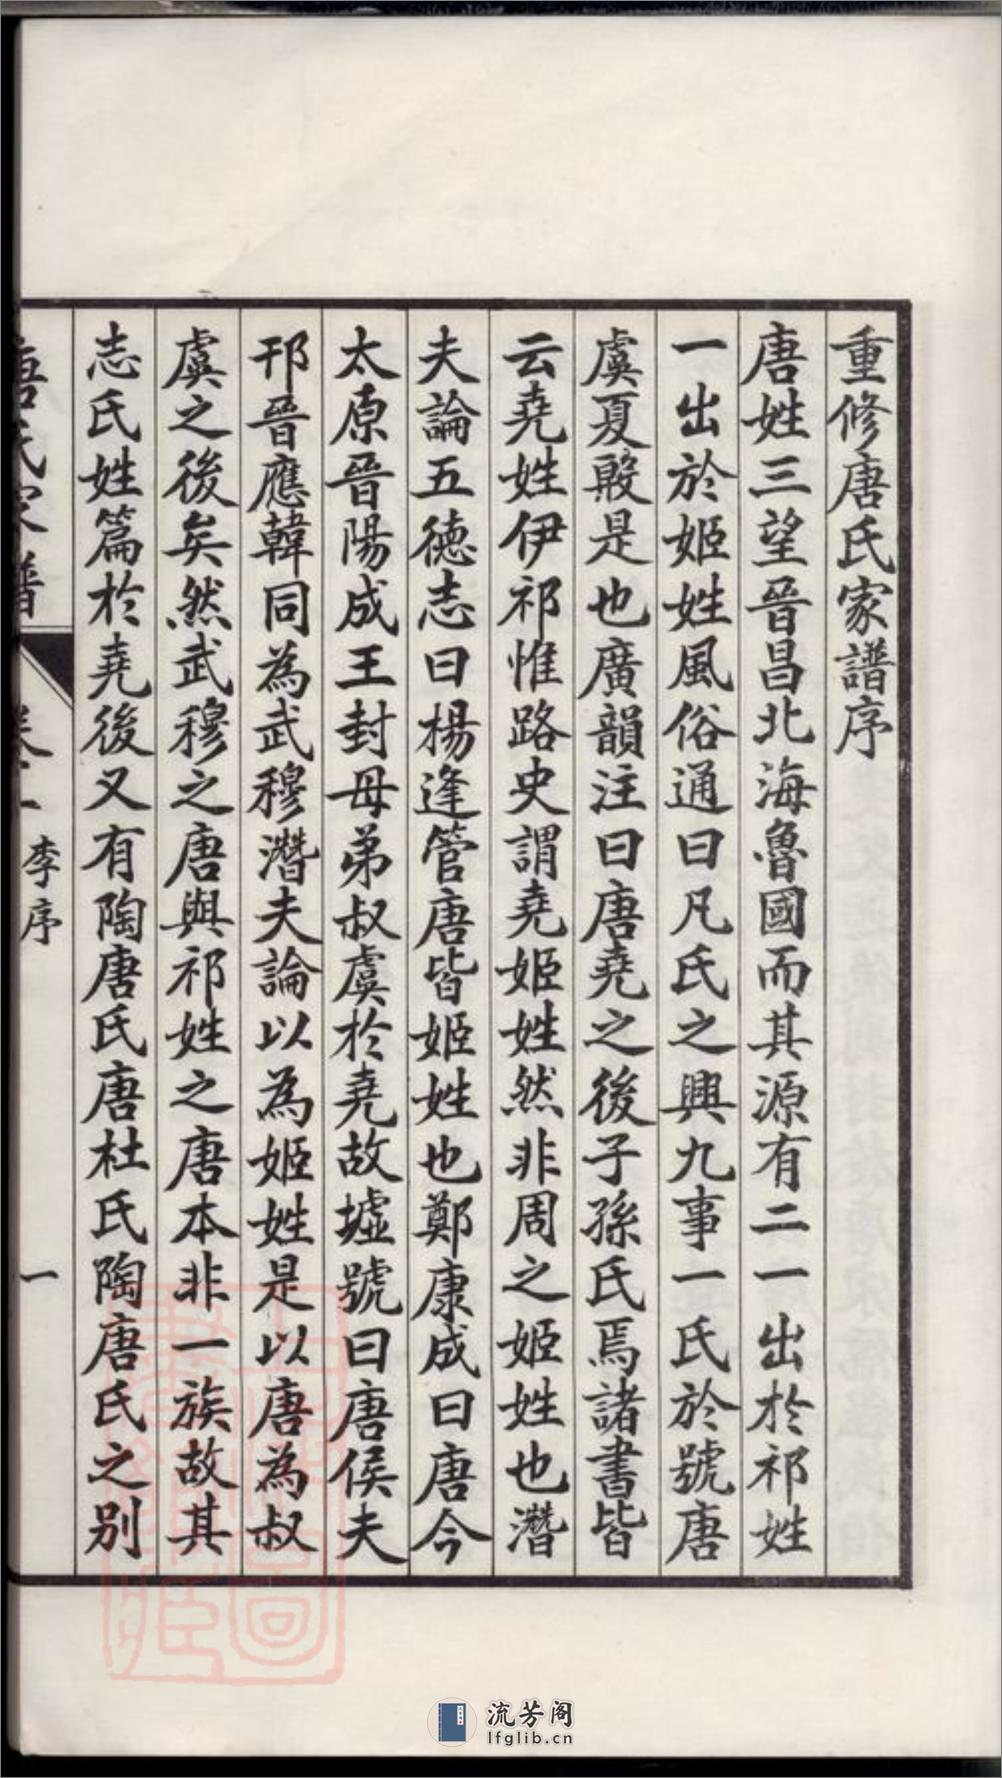 重修唐氏家譜序
唐姓三望晉昌北海魯國而其源有二一出於祁姓
一出於姬姓風俗通曰凡氏之興九事一氏於號唐
虞夏殷是也廣韻注曰唐堯之後子孫氏焉諸書皆
云堯姓伊祁惟路史謂堯姬姓然非周之姬姓也潛
夫論五德志曰楊逢管唐皆姬姓也鄭康成曰唐今
太原晉陽成王封母弟叔虞於堯故墟號曰唐侯夫
邘晉應韓同為武穆潛夫論以為姬姓是以唐為叔
虞之後矣然武穆之唐與祁姓之唐本非一族故其
志氏姓篇於堯後又有陶唐氏唐杜氏陶唐氏之別
唐氏家譜 卷 李序 一
流芳阁
lfglib.cn